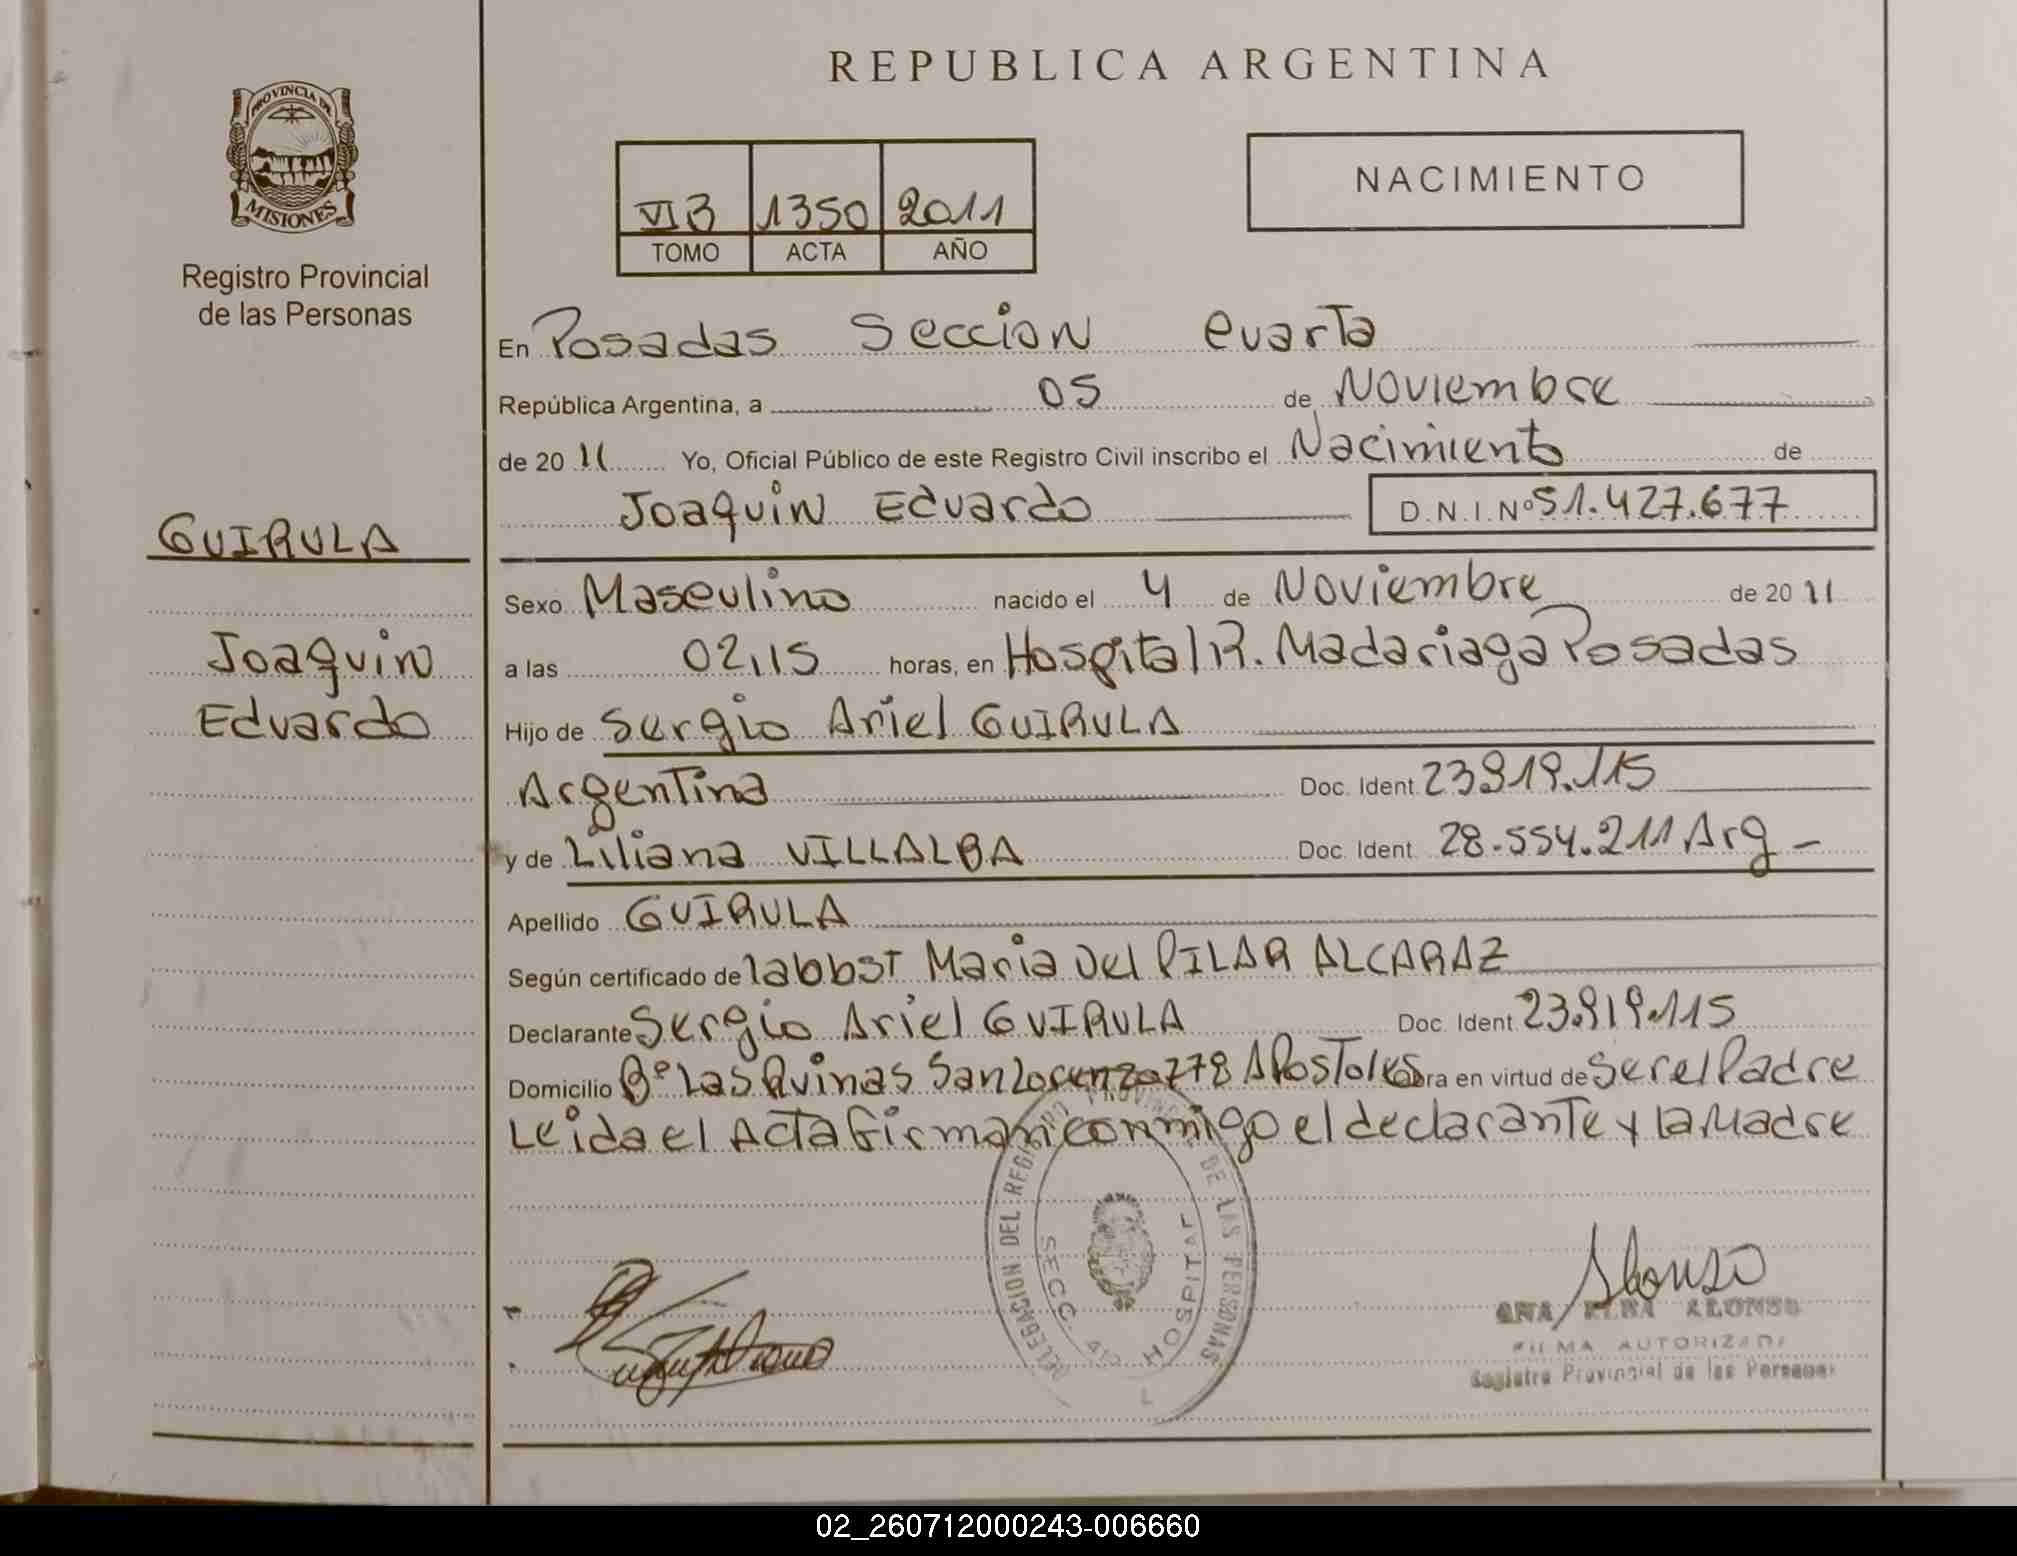 REPUBLICA ARGENTINA
PROVINCIA DE
MISIONES
Registro Provincial
de las Personas
NACIMIENTO
VI B 1350 2011
TOMO ACTA AÑO
En Posadas Seccion cuarta
República Argentina, a 05 de Noviembre
de 20 11 Yo, Oficial Público de este Registro Civil inscribo el Nacimiento de
Joaquin Eduardo D.N.I. Nº 51.427.677
GUIRULA
Sexo Masculino nacido el 4 de Noviembre de 20 11
Joaquin
a las 02,15 horas, en Hospital R. Madariaga Posadas
Eduardo
Hijo de Sergio Ariel GUIRULA
Argentina Doc. Ident. 23.919.115
y de Liliana VILLALBA Doc. Ident. 28.554.211 Arg -
Apellido GUIRULA
Según certificado de la obst Maria Del PILAR ALCARAZ
Declarante Sergio Ariel GUIRULA Doc. Ident. 23.919.115
Domicilio Bº Las Ruinas San Lorenzo 278 APosToles obra en virtud de ser el Padre
Leida el Acta firman conmigo el declarante y la Madre
DELEGACION DEL REGISTRO PROVINCIAL DE LAS PERSONAS
SECC. 4ta HOSPITAL
Alonso
ANA ELBA ALONSO
FIRMA AUTORIZADA
Registro Provincial de las Personas
02_260712000243-006660